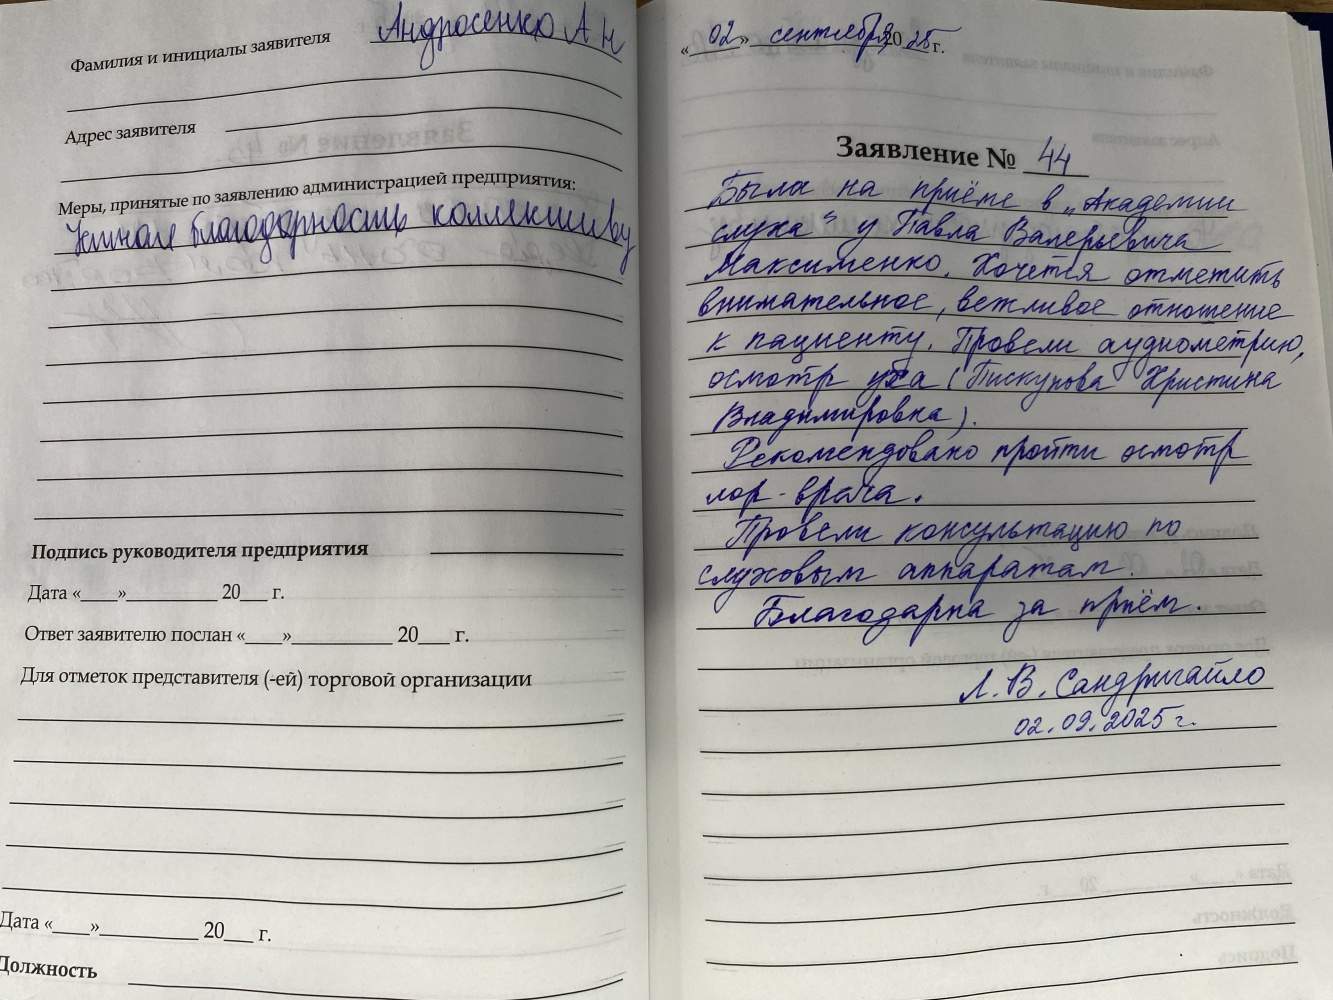 Фамилия и инициалы заявителя Андросенко А Н
Адрес заявителя
Меры, принятые по заявлению администрацией предприятия:
благодарность коллективу
Подпись руководителя предприятия
Дата «___»_________ 20___ г.
Ответ заявителю послан «___»_________ 20___ г.
Для отметок представителя (-ей) торговой организации
Дата «___»_________ 20___ г.
Должность
«02» сентября 2025 г.
Заявление № 44
Была на приёме в „Академии
слуха" у Павла Валерьевича
Максименко. Хочется отметить
внимательное, вежливое отношение
к пациенту. Провели аудиометрию,
осмотр уха (Пискунова Христина
Владимировна).
Рекомендовано пройти осмотр
лор-врача.
Провели консультацию по
слуховым аппаратам.
Благодарна за приём.
Л. В. Сандригайло
02.09.2025 г.